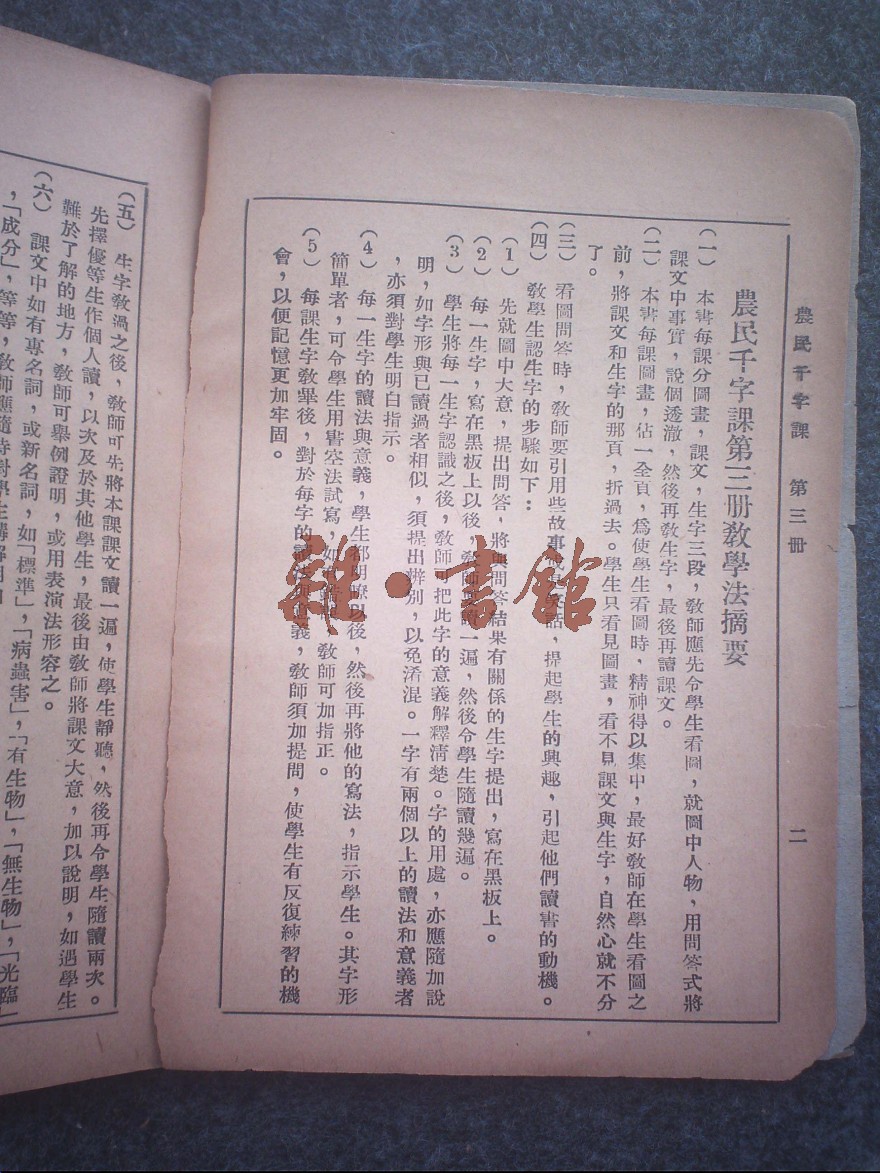 農民千字課　第三册　二
農民千字課第三册敎學法摘要
(一)　本書每課分圖畫，課文，生字三段，敎師應先令學生看圖，就圖中人物，用問答式將
課文中事實，說個透澈，然後再敎生字，最後再讀課文。
(二)　本書每課圖畫，佔一全頁，爲使學生看圖時，精神得以集中，最好敎師在學生看圖之
前，將課文和生字的那頁，折過去。學生只看見圖畫，看不見課文與生字，自然心就不分
了。
(三)　看圖問答時，敎師要引用些故事或是笑話，提起學生的興趣，引起他們讀書的動機。
(四)　敎學生認生字的步驟如下：
(1)　先就圖中大意，提出問答，將與問答結果有關係的生字提出，寫在黑板上。
(2)　每一生字，寫在黑板上以後，敎師應讀一遍，然後令學生隨讀幾遍。
(3)　學生將每一生字認識之後，敎師可把此字的意義解釋淸楚。字的用處，亦應隨加說
明，如字形與已讀過者相似，須提出辨別，以免淆混。一字有兩個以上的讀法和意義者
，亦須對學生明白指示。
(4)　每一生字的讀法與意義，學生都明瞭以後，然後再將他的寫法，指示學生。其字形
簡單者，可令學生用書空法試寫，如 敎師可加指正。
(5)　每課生字敎畢後，對於每字的讀法與意義，敎師須加提問，使學生有反復練習的機
會，以便記憶更加牢固。
(五)　生字敎過之後，敎師可先將本課課文讀一遍，使學生靜聽，然後再令學生隨讀兩次。
先擇優等生作個人讀，以次及於其他學生，最後由敎師將課文大意，加以說明，如遇學生
難於了解的地方，敎師可舉例證明，或用表演法形容之。
(六)　課文中如有專名詞，或新名詞，如「標準」，「病蟲害」，「有生物」，「無生物」，「光臨」
，「成分」，等等，敎師應隨時對學生講解明白
雜·書館